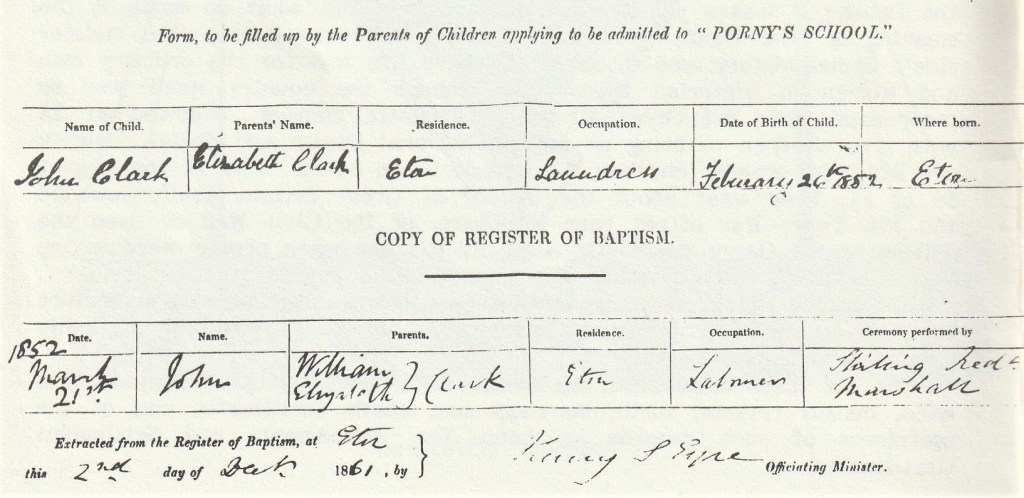 Form, to be filled up by the Parents of Children applying to be admitted to " PORNY'S SCHOOL."
Name of Child. Parents' Name. Residence. Occupation. Date of Birth of Child. Where born.
John Clark Elizabeth Clark Eton Laundress February 26th 1852 Eton
COPY OF REGISTER OF BAPTISM.
Date. Name. Parents. Residence. Occupation. Ceremony performed by
1852
March 21st John William Elizabeth } Clark Eton Labourer Marshall
Extracted from the Register of Baptism, at Eton
this 2nd day of 1861, by } Eyre Officiating Minister.